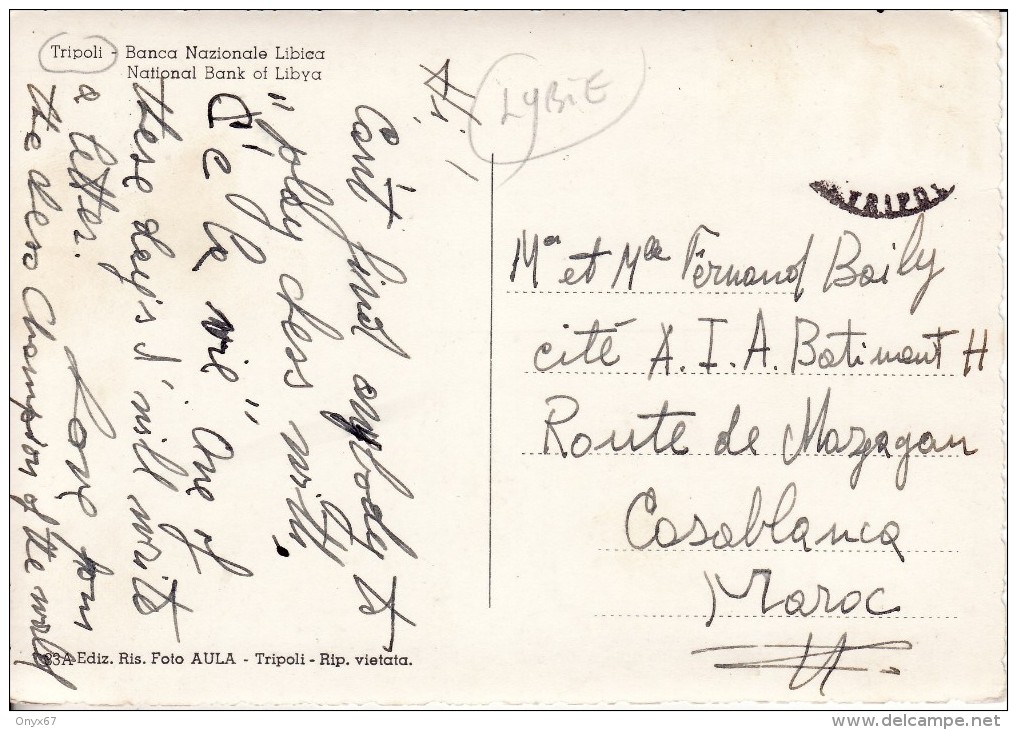 Tripoli - Banca Nazionale Libica
National Bank of Libya
LYBIE
Hi!
Can't find anybody to
"play chess with.
C'é la vie" One of
these day's I'will write
a letter. Love from
the chess Champion of the world
TRIPOL
Mr et Mlle Fernand Baily
cité A.I.A. Batiment H
Route de Mazagan
Casablanca
Maroc
83A Ediz. Ris. Foto AULA - Tripoli - Rip. vietata.
Onyx67
http://www.delcampe.net